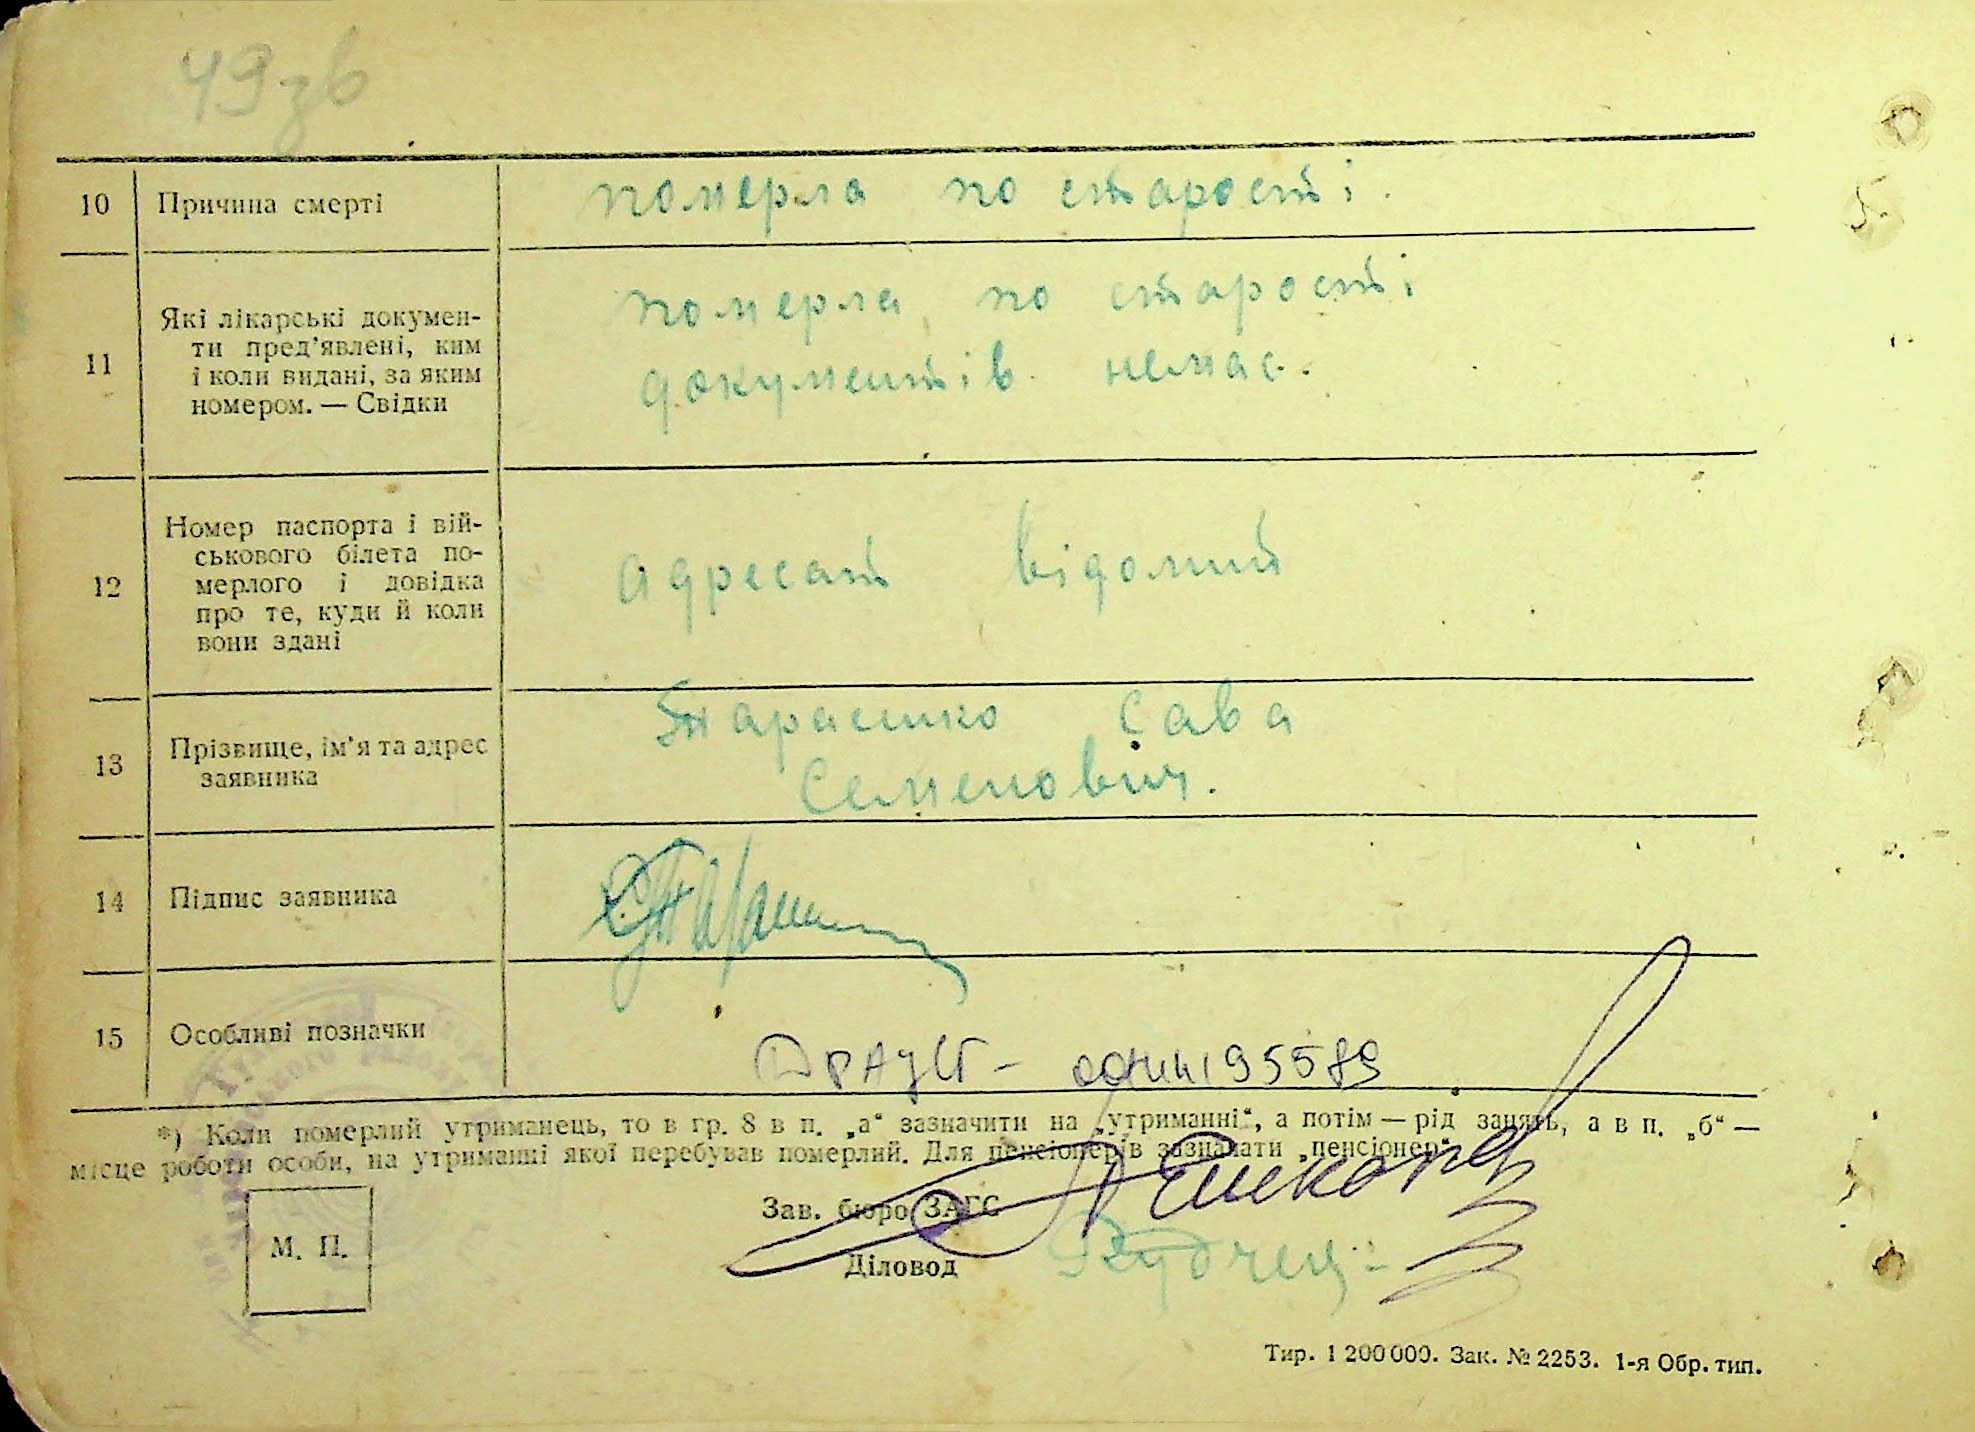 49 зв
10 Причина смерті померла по старості.
11 Які лікарські докумен-
ти пред'явлені, ким
і коли видані, за яким
номером. — Свідки
померла по старості
документів немає.
12 Номер паспорта і вій-
ськового білета по-
мерлого і довідка
про те, куди й коли
вони здані
адресат відомий
13 Прізвище, ім'я та адрес
заявника
Тарасенко Сава
Семенович.
14 Підпис заявника
15 Особливі позначки
*) Коли померлий утриманець, то в гр. 8 в п. „а“ зазначити на „утриманні“, а потім — рід занять, а в п. „б“ —
місце роботи особи, на утриманні якої перебував померлий. Для пенсіонерів зазначати „пенсіонер“.
Зав. бюро ЗАГС
М. П.
Діловод
Тир. 1 200 000. Зак. № 2253. 1-я Обр. тип.